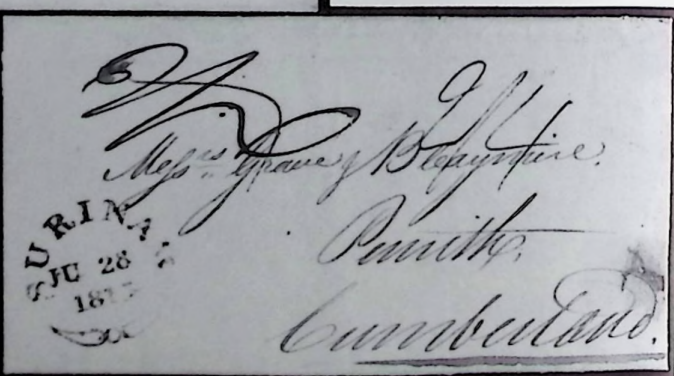 Messrs. Grave & Bleaymire.
Penrith,
Cumberland.
SURINAM
JU 28